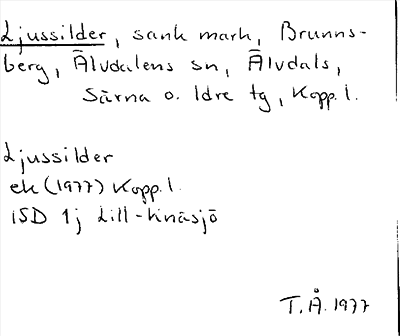 Ljussilder, sank mark, Brunns-
berg, Älvdalens sn, Älvdals,
Särna o. Idre tg, Kopp. l.
Ljussilder
ek (1977) Kopp. l.
ISD 1j Lill-Knäsjö
T. Å. 1977